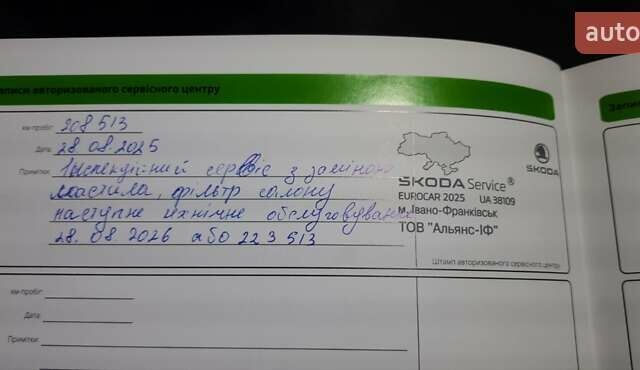 auto
записи авторизованого сервісного центру
км-пробіг: 208 513
Дата: 28.08.2025
Примітки: Інспекційний сервіс з заміною
мастила, фільтр салону
наступне технічне обслуговування
28.08.2026 або 223 513
ŠKODA Service®
EUROCAR 2025 UA 38109
м. Івано-Франківськ
ТОВ "Альянс-ІФ"
ŠKODA
Штамп авторизованого сервісного центру
км-пробіг:
Дата:
Примітки: